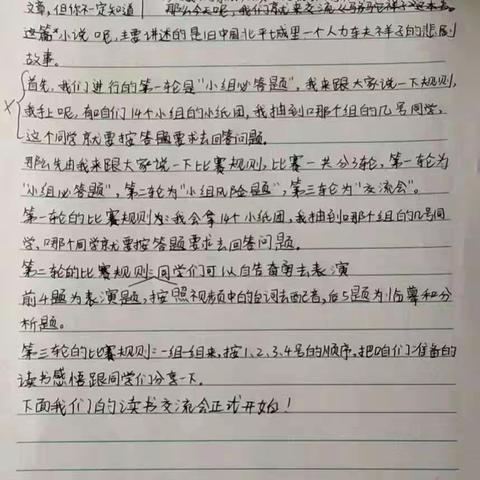 文章，但你不一定知道
那么今天呢，我们就来交流《骆驼祥子》这本书。
这篇小说呢，主要讲述的是旧中国北平城里一个人力车夫祥子的悲剧
故事。
首先，我们进行的第一轮是“小组必答题”，我来跟大家说一下规则，
我手上呢，有咱们14个小组的小纸团，我抽到哪个组的几号同学，
这个同学就要按答题要求去回答问题。
那么先由我来跟大家说一下比赛规则，比赛一共分3轮，第一轮为
“小组必答题”，第二轮为“小组风险题”，第三轮为“交流会”。
第一轮的比赛规则为：我会拿14个小纸团，我抽到哪个组的几号同
学，哪个同学就要按答题要求去回答问题。
第二轮的比赛规则：同学们可以自告奋勇去表演
前4题为表演题，按照视频中的台词去配音，后5题为临摹和分
析题。
第三轮的比赛规则：一组一组来，按1、2、3、4号的顺序，把咱们准备的
读书感悟跟同学们分享一下。
下面我们的读书交流会正式开始！